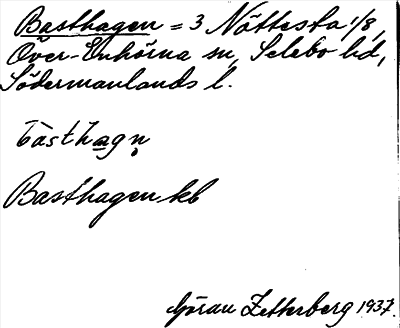 Basthagen = 3 Nättesta 1/8,
Över-Enhörna sn, Selebo hd,
Södermanlands l.
bàsthagn̥
Basthagen kb
Göran Zetterberg 1937.